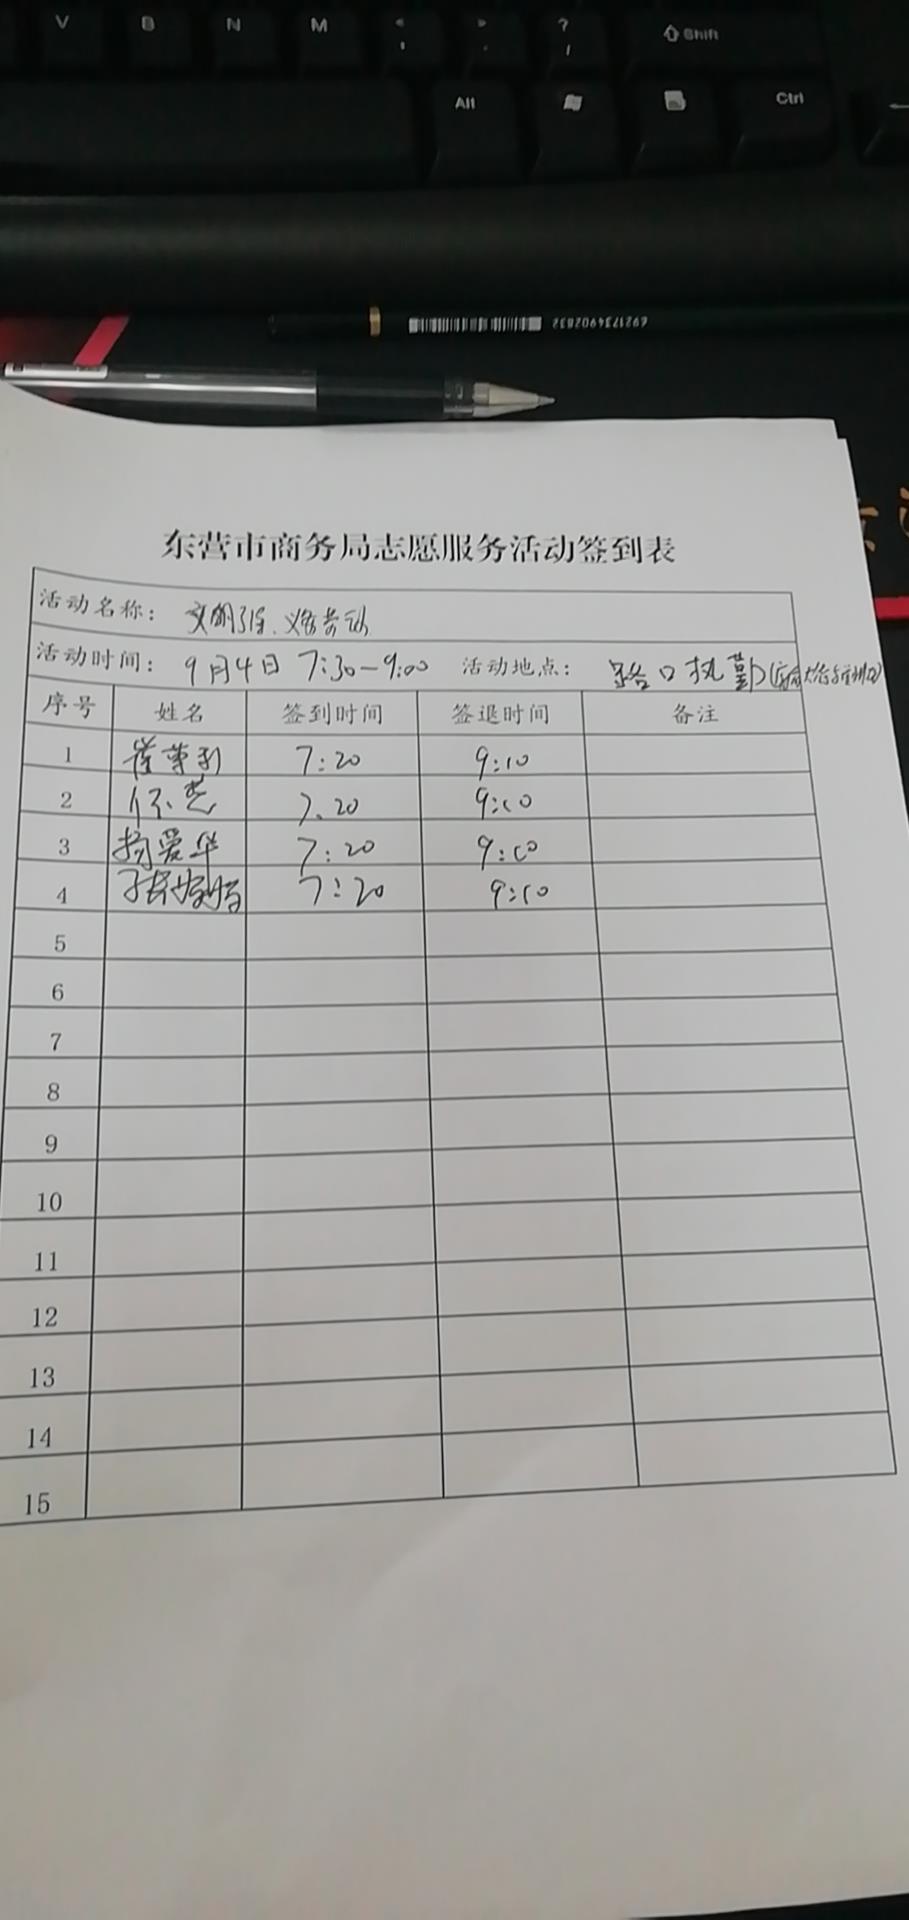 V B N M < , > . ? / Shift
Alt Ctrl
6921734902832
东营市商务局志愿服务活动签到表
活动名称: 文明引导、义务劳动
活动时间: 9月4日 7:30-9:00 活动地点: 路口执勤
序号 姓名 签到时间 签退时间 备注
1 7:20 9:10
2 7:20 9:10
3 杨爱华 7:20 9:10
4 7:20 9:10
5
6
7
8
9
10
11
12
13
14
15